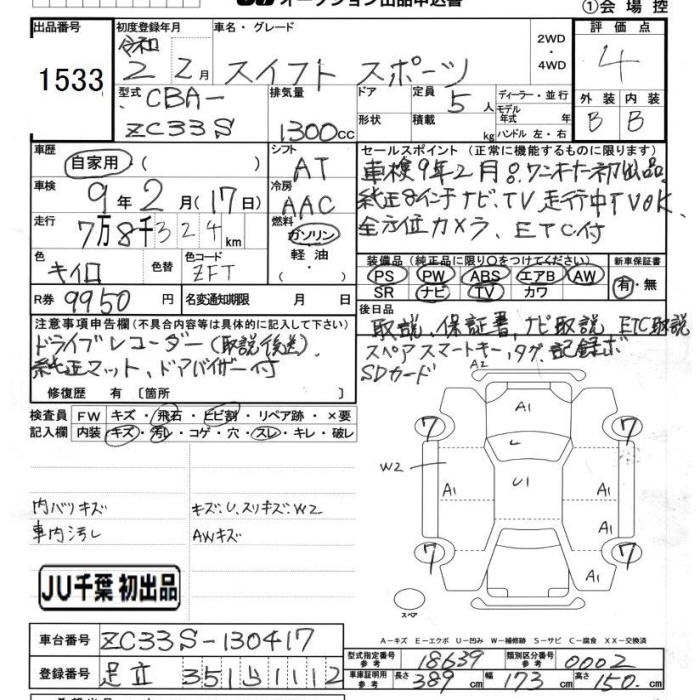 オークション出品申込書
①会場控
出品番号
1533
初度登録年月
令和
2 2月
車名・グレード
スイフト スポーツ
2WD
・
4WD
評価点
4
型式
CBA-
ZC33S
排気量
1300cc
ドア
形状
定員 5人
積載 kg
ディーラー・並行
モデル年式 年
ハンドル 左・右
外装 内装
B B
車歴
自家用・( )
シフト
AT
車検
9年2月(17日)
冷房
AAC
走行
7万8千324km
燃料
ガソリン
軽油
・
色
キイロ
色替
色コード
ZFT
R券 9950円
名変通知期限 月 日
セールスポイント (正常に機能するものに限ります)
車検9年2月。ワンオーナー初出品。
純正8インチナビ、TV走行中TVOK、
全方位カメラ、ETC付
装備品 (純正品に限り○をつけてください)
PS PW ABS エアB AW
SR ナビ TV カワ
新車保証書
有・無
後日品
取説、保証書、ナビ取説、ETC取説
スペアスマートキー、タグ、記録ボ
SDカード
注意事項申告欄 (不具合内容等は具体的に記入して下さい)
ドライブレコーダー(取説後送)、
純正マット、ドアバイザー付
修復歴 有 〔箇所 〕
検査員 FW キズ・飛石・ヒビ割・リペア跡・×要
記入欄 内装 キズ・汚レ・コゲ・穴・スレ・キレ・破レ
内バリキズ
車内汚し
キズ・U、スリキズ・W2
AWキズ
JU千葉 初出品
A2
A1
7 7
L
W2
A1 U1 A1
7 7
A1
スペア
A-キズ E-エクボ U-凹み W-補修跡 S-サビ C-腐食 XX-交換済
車台番号 ZC33S-130417
登録番号 足立 351 い 1112
型式指定番号 参考 18639
類別区分番号 参考 0002
車庫証明用 参考 長さ 389cm 幅 173cm 高さ 150cm